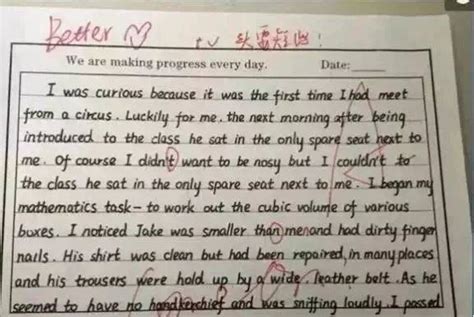 Better
We are making progress every day. Date:
I was curious because it was the first time I had meet
from a circus. Luckily for me, the next morning after being
introduced to the class he sat in the only spare seat next to
me. Of course I didn't want to be nosy but I couldn't to
the class he sat in the only spare seat next to me. I began my
mathematics task - to work out the cubic volume of various
boxes. I noticed Jake was smaller than me and had dirty finger
nails. His shirt was clean but had been repaired, in many places
and his trousers were hold up by a wide, leather belt. As he
seemed to have no handkerchief and was sniffing loudly. I passed